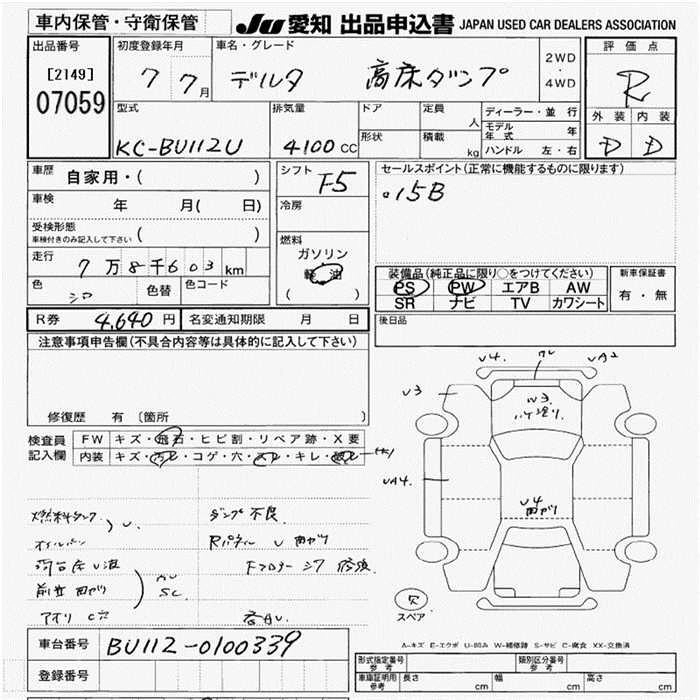 車内保管・守衛保管
JU 愛知 出品申込書 JAPAN USED CAR DEALERS ASSOCIATION
出品番号
[2149]
07059
初度登録年月
7 7月
車名・グレード
デルタ 高床ダンプ
2WD
・
4WD
評価点
R
外装 内装
D D
型式
KC-BU112U
排気量
4100 CC
ドア
形状
定員
人
積載
kg
ディーラー・並行
モデル年式 年
ハンドル 左・右
車歴
自家用・( )
車検
年 月( 日)
受検形態
車検付きのみ記入して下さい ( )
走行
7万8千603km
色
シロ
色替
色コード
シフト
F5
冷房
燃料
ガソリン
軽油
( )
セールスポイント(正常に機能するものに限ります)
。15B
装備品(純正品に限り〇をつけてください)
PS PW エアB AW
SR ナビ TV カワシート
新車保証書
有・無
R券 4,640円
名変通知期限 月 日
後日品
注意事項申告欄(不具合内容等は具体的に記入して下さい)
修復歴 有 〔箇所 〕
検査員
記入欄
FW キズ・飛石・ヒビ割・リペア跡・X要
内装 キズ・汚レ・コゲ・穴・スレ・キレ・破レ
燃料タンク
オイルパン
U
荷台床U波
前立曲がり
SC
アオリ C穴
ダンプ不良
Rパネル U 曲がり
各AU
U4.
UA2
U3
W3
ハケ塗り
UA4.
U4
曲がり
スペア
A-キズ E-エクボ U-凹み W-補修跡 S-サビ C-腐食 XX-交換済
車台番号
BU112-0100339
登録番号
形式指定番号
参考
類別区分番号
参考
車庫証明用
参考
長さ cm 幅 cm 高さ cm